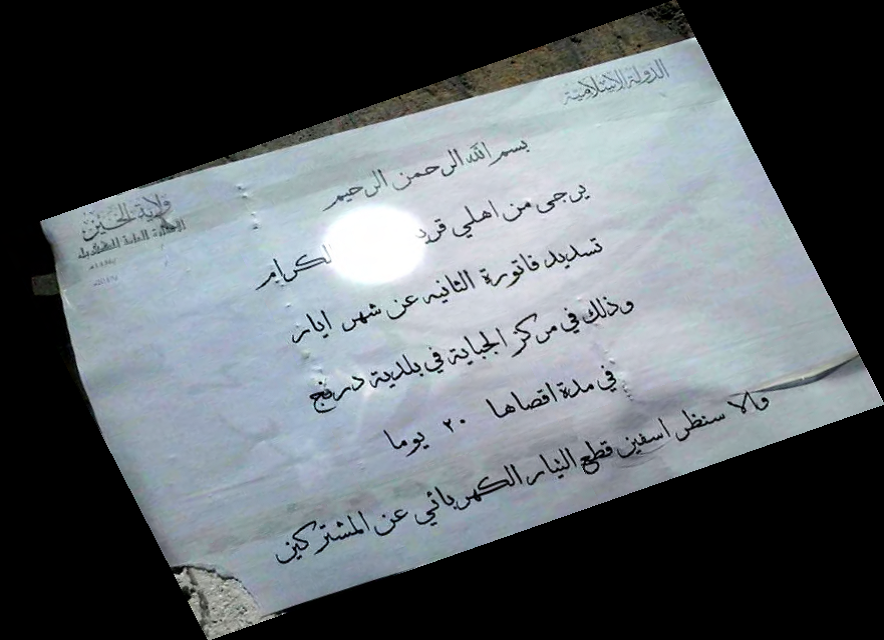 الدولة الإسلامية
ولاية الخير
بسم الله الرحمن الرحيم
يرجى من اهلي الكرام
تسديد فاتورة الثانيه عن شهر ايار
وذلك في مركز الجباية في بلدية درنج
في مدة اقصاها ٢٠ يوما
والا سنظر اسفين قطع التيار الكهربائي عن المشتركين